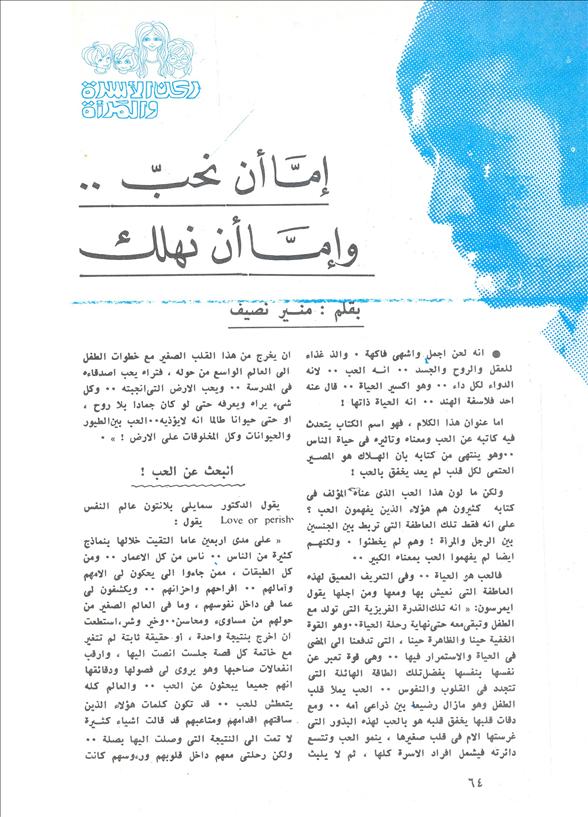 ركن الأسرة
والمرأة
إمَّا أن نحبّ ..
وإمَّا أن نهلك
بقلم : منير نصيف
● انه لحن اجمل واشهى فاكهة ٠ والذ غذاء
للعقل والروح والجسد ٠٠ انه الحب ٠٠ لانه
الدواء لكل داء ٠٠ وهو اكسير الحياة ٠٠ قال عنه
احد فلاسفة الهند ٠٠ انه الحياة ذاتها !
اما عنوان هذا الكلام ، فهو اسم الكتاب يتحدث
فيه كاتبه عن الحب ومعناه وتاثيره فى حياة الناس
٠٠وهو ينتهى من كتابه بان الهلاك هو المصير
الحتمى لكل قلب لم يعد يخفق بالحب !
ولكن ما لون هذا الحب الذى عناه المؤلف فى
كتابه كثيرون هم هؤلاء الذين يفهمون الحب ؟
على انه فقط تلك العاطفة التى تربط بين الجنسين
بين الرجل والمراة ! وهم لم يخطئوا ٠ ولكنهم
ايضا لم يفهموا الحب بمعناه الكبير ٠٠
فالحب هو الحياة ٠٠ وفى التعريف العميق لهذه
العاطفة التى نعيش بها ومعها ومن اجلها يقول
ايمرسون: « انه تلك القدرة الغريزية التى تولد مع
الطفل وتبقى معه حتى نهاية رحلة الحياة٠٠وهو القوة
الخفية حينا والظاهرة حينا ، التى تدفعنا الى المضى
فى الحياة والاستمرار فيها ٠٠ وهى قوة تعبر عن
نفسها بنفسها بفضل تلك الطاقة الهائلة التى
تتجدد فى القلوب والنفوس ٠٠ الحب يملأ قلب
الطفل وهو مازال رضيعا بين ذراعى امه ٠٠ ومع
دقات قلبها يخفق قلبه هو بالحب لهذه البذور التى
غرستها الام فى قلب صغيرها ، ينمو الحب وتتسع
دائرته فيشمل افراد الاسرة كلها ، ثم لا يلبث
ان يخرج من هذا القلب الصغير مع خطوات الطفل
الى العالم الواسع من حوله ، فتراه يحب اصدقاءه
فى المدرسة ٠٠ ويحب الارض التى انجبته ٠٠ وكل
شىء يراه ويعرفه حتى لو كان جمادا بلا روح ،
او حتى حيوانا طالما انه لايؤذيه٠٠الحب بين الطيور
والحيوانات وكل المخلوقات على الارض ! » ٠
ابحث عن الحب !
يقول الدكتور سمايلى بلانتون عالم النفس
Love or perish يقول :
« على مدى اربعين عاما التقيت خلالها بنماذج
كثيرة من الناس ٠٠ ناس من كل الاعمار ٠٠ ومن
كل الطبقات ، ممن جاءوا الى يحكون لى الامهم
وآمالهم ٠٠ افراحهم واحزانهم ٠٠ ويكشفون لى
عما فى داخل نفوسهم ، وما فى العالم الصغير من
حولهم من مساوىء ومحاسن٠٠وخير وشر،استطعت
ان اخرج بنتيجة واحدة ، او حقيقة ثابتة لم تتغير
مع خاتمة كل قصة جلست انصت اليها ، وارقب
انفعالات صاحبها وهو يروى لى فصولها ودقائقها
انهم جميعا يبحثون عن الحب ٠٠ والعالم كله
يتعطش للحب ٠٠ قد تكون كلمات هؤلاء الذين
ساقتهم اقدامهم ومتاعبهم قد قالت اشياء كثيرة
لا تمت الى النتيجة التى وصلت اليها بصلة ٠٠
ولكن رحلتى معهم داخل قلوبهم ورءوسهم كانت
٦٤